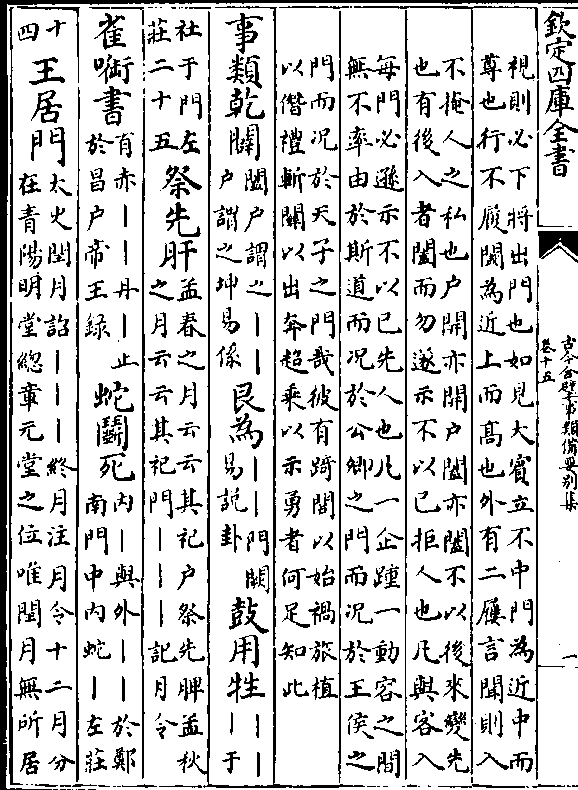 欽定四庫全書
古今合璧事類備要別集
卷十五
一
視則必下將出門也如見大賓立不中門為近中而
尊也行不履閾為近上而髙也外有二屨言聞則入
不掩人之私也户開亦開户闔亦闔不以後來變先
也有後入者闔而勿遂示不以已拒人也凡與客入
每門必遜示不以已先人也凡一企踵一動容之間
無不率由於斯道而况於公卿之門而况於王侯之
門而况於天子之門哉彼有踦閭以始禍旅植
以僭禮斬關以出奔超乗以示勇者何足知此
事類乾闢闔户謂之｜｜户謂之坤易係艮為｜｜門闕易説卦鼓用牲｜｜｜于
社于門左莊二十五祭先肝孟春之月云云其祀户祭先脾孟秋之月云云其祀門｜｜｜記月令
雀啣書有赤｜｜丹｜止於昌户帝王録蛇鬭死内｜與外｜｜於鄭南門中内蛇｜左莊
十四王居門太火閏月詔｜｜｜終月注月令十二月分在青陽明堂總章元堂之位唯閏月無所居